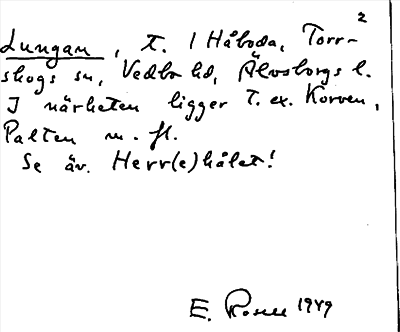 2
Lungan, t. 1 Håboda, Torr-
skogs sn, Vedbo hd, Älvsborgs l.
I närheten ligger t.ex. Korven,
Palten m. fl.
Se äv. Herr(e)hålet!
E. Rosell 1949